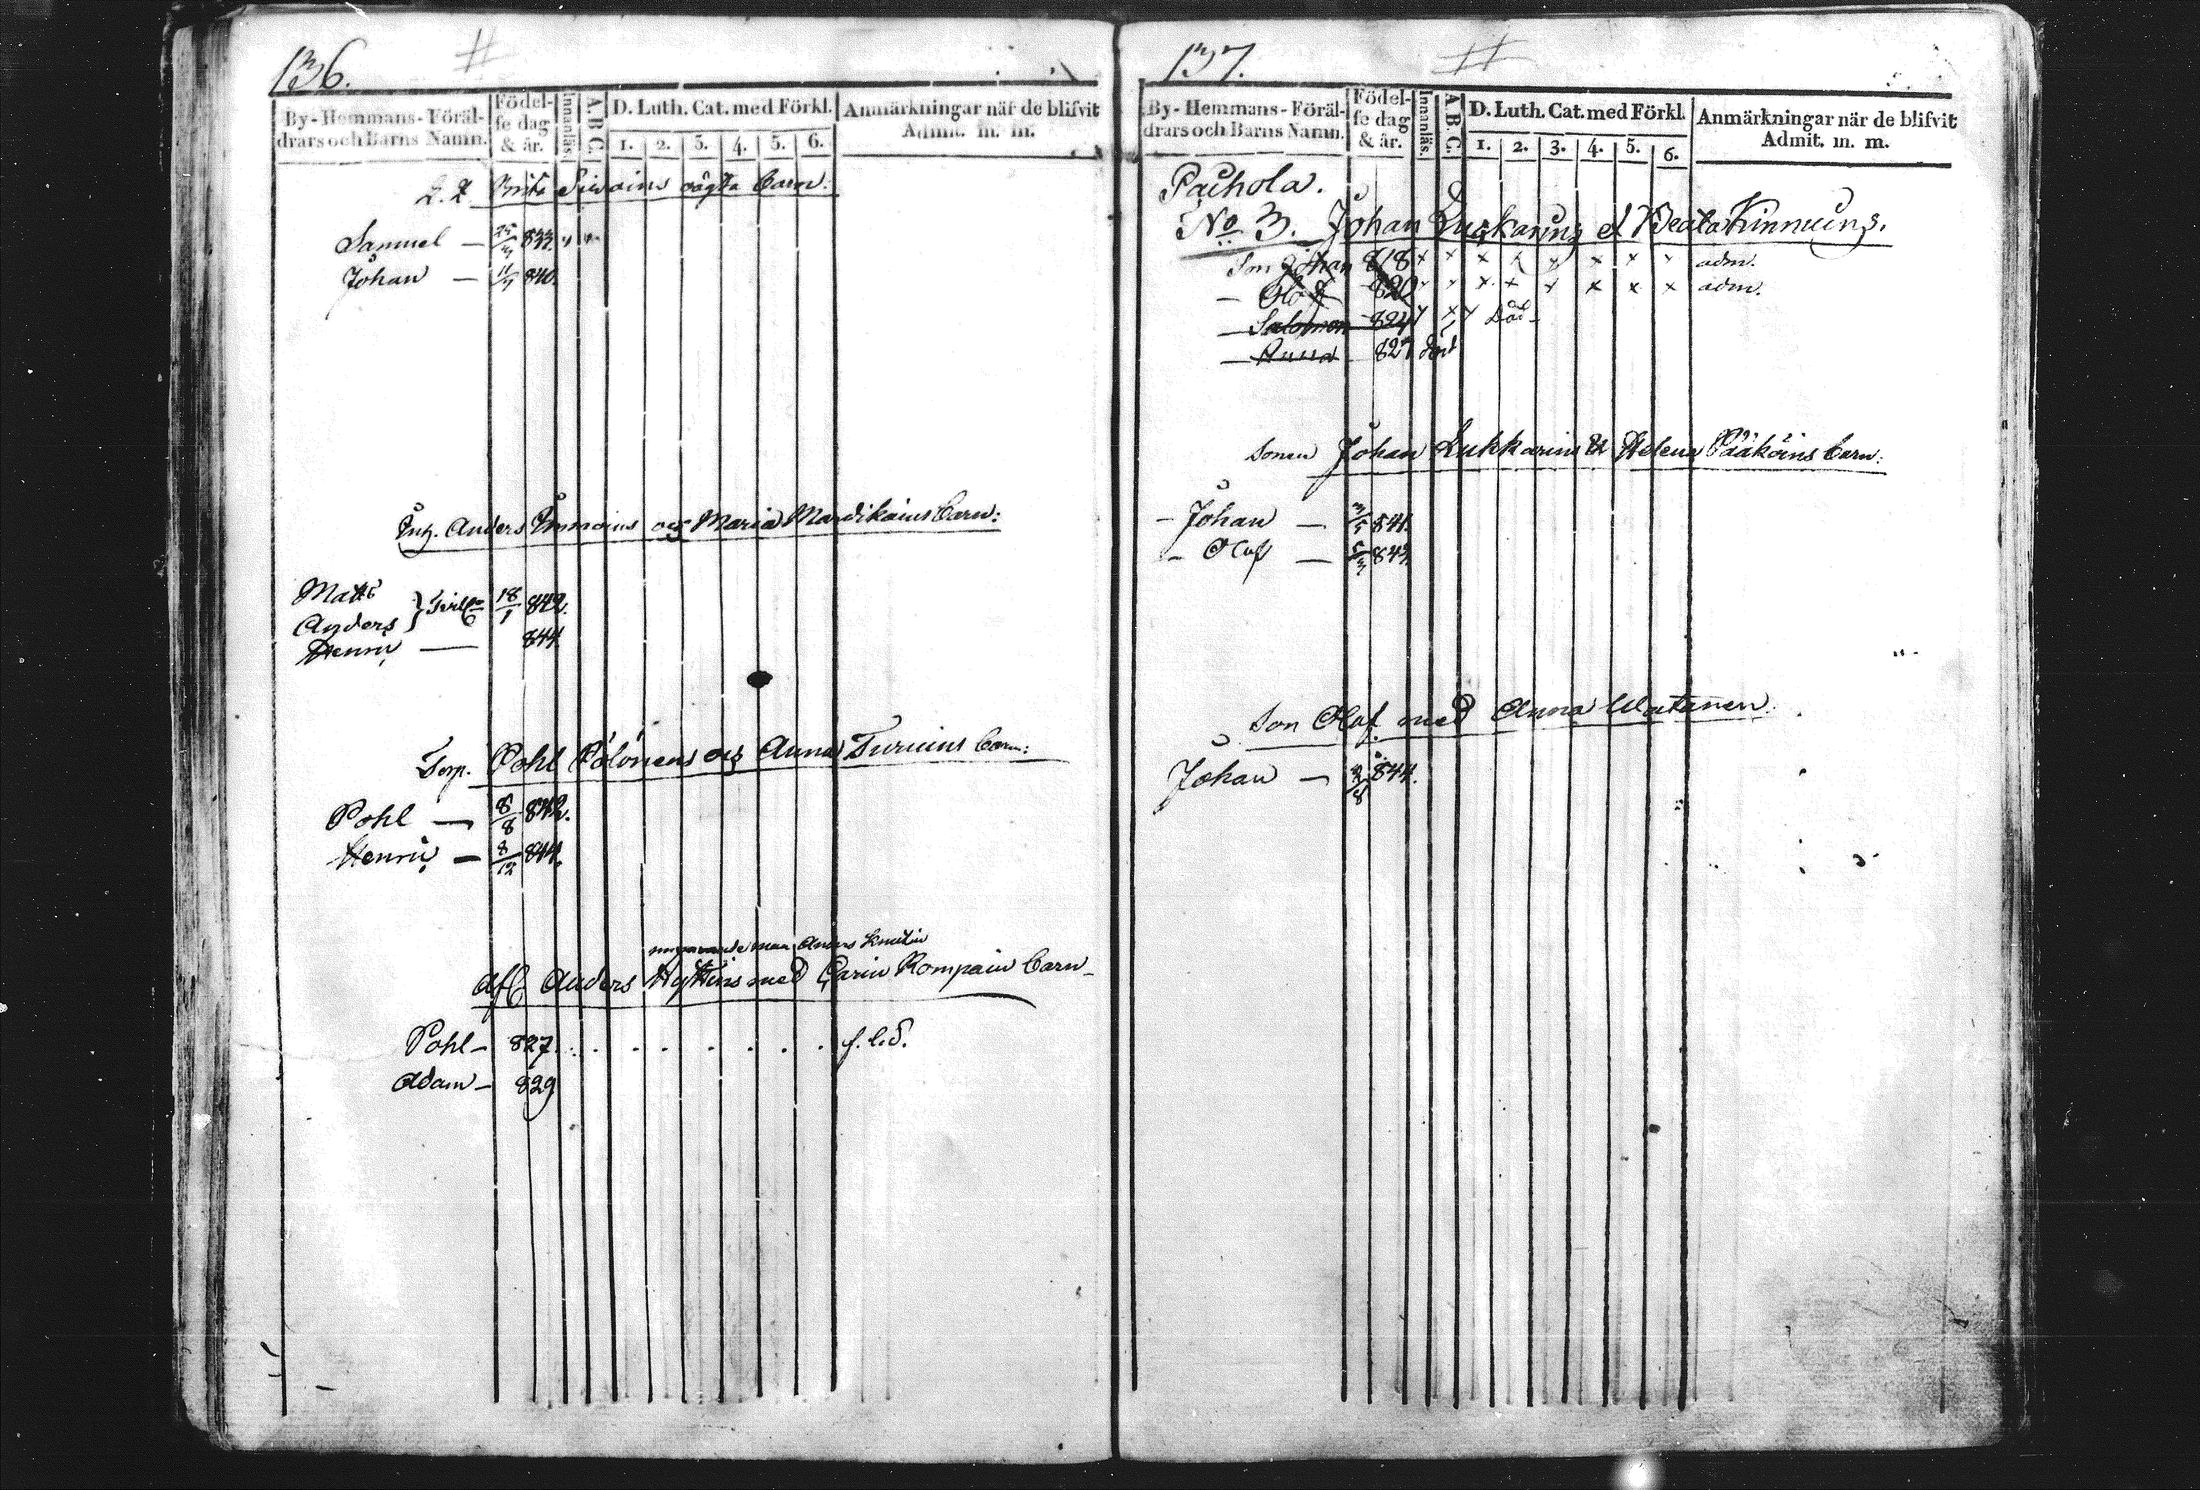 136. #
By-Hemmans-Föräl-
drars och Barns Namn.
Födel-
se dag
& år.
Innanläs.
A.B.C.
D. Luth. Cat. med Förkl.
1. 2. 3. 4. 5. 6.
Anmärkningar när de blifvit
Admit. m. m.
oägta barn:
Samuel —
Johan — 11/7 840.
Anders Immoins och Maria Mardikains Barn:
Matts
Anders } 18/1 842.
Henric — 844
Torp. Pohl Pölönens och Anna Turuins Barn:
Pohl — 8/8 842.
Henric — 8/12 844.
man Anders
Afl. Anders Hyttins med Carin Rompain Barn
Pohl — 827. f.l.d.
Adam — 829
137. #
By-Hemmans-Föräl-
drars och Barns Namn.
Födel-
se dag
& år.
Innanläs.
A.B.C.
D. Luth. Cat. med Förkl.
1. 2. 3. 4. 5. 6.
Anmärkningar när de blifvit
Admit. m. m.
Pachola.
No 3. Johan Lukkarins et Beata Kinnuins.
Son Johan 818 x x x x x x x x adm.
— Olof 820 x x x x x x x x adm.
— Salomon 824 död
— Anna 827 död
Sonen Johan Lukkarins & Helena Pääköins Barn:
— Johan — 841.
— Olof — 843
Son Olof med Anna Watanen
Johan — 2/8 844.